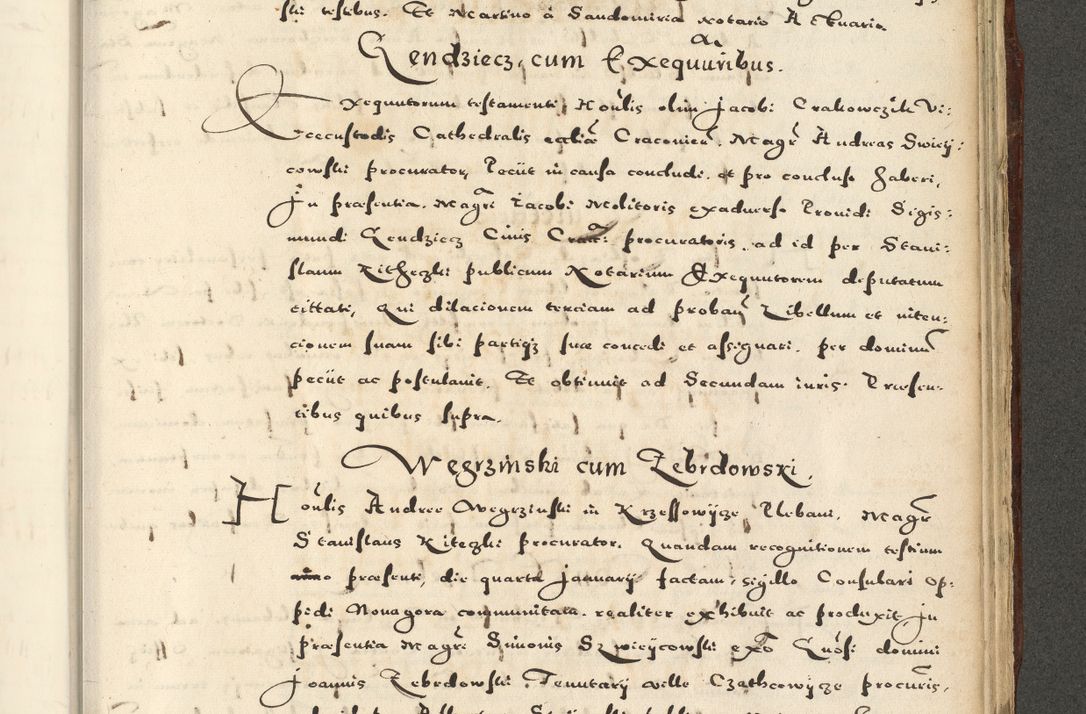 ski testibus. Et Martino à Sandomiria notario Actuario.
Gendziecz cum Exequutoribus.
Exequutorum testamenti Honlis olim Jacobi Crakowczik Vi:
cecustodis Cathedralis ecclie Cracovien. Magr Andreas Swiecij:
cowski procurator, Peciit in causa concludi. et pro concluso haberi,
In præsentia. Magri Iacobi Molitoris exaduerso Prouidi Sigis:
mundi Gendziecz Ciuis Crac: procuratoris. ad id per Stani:
slaum Kitheczki publicum Notarium Exequutorem deputatum
cittati, Qui dilacionem terciam ad proban Libellum et inten:
cionem suam sibi partiqz suæ concedi et assignari. per dominum
peciit ac postulauit. Et obtinuit ad Secundam iuris. Præsen:
tibus quibus supra.
Wegrzinski cum Zebrdowski.
Honlis Andree Wegrzinski in Krzessowijcze Plebani, Magr
Stanislaus Kiteczki procurator. Quandam recognitionem testium
anno præsenti, die quarta Januarij factam, sigillo Consulari Op:
pidi Nouagora communitam. realiter exhibuit ac produxit, In
præsentia Magri Simonis Szwieijcowski exo Gnosi domini
Joannis Zebrdowski. Tenutarij ville Czathcowijcze procuris,